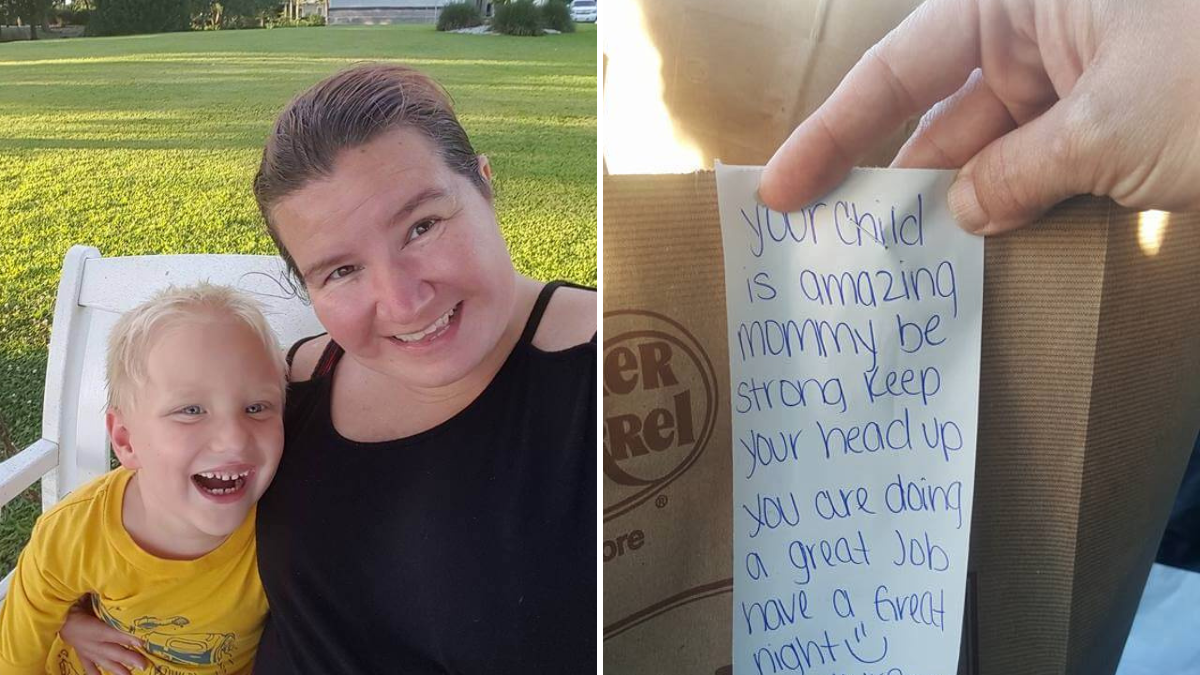 your child
is amazing
mommy be
strong keep
your head up
you are doing
a great Job
have a Great
night
ER
Rel
®
ore